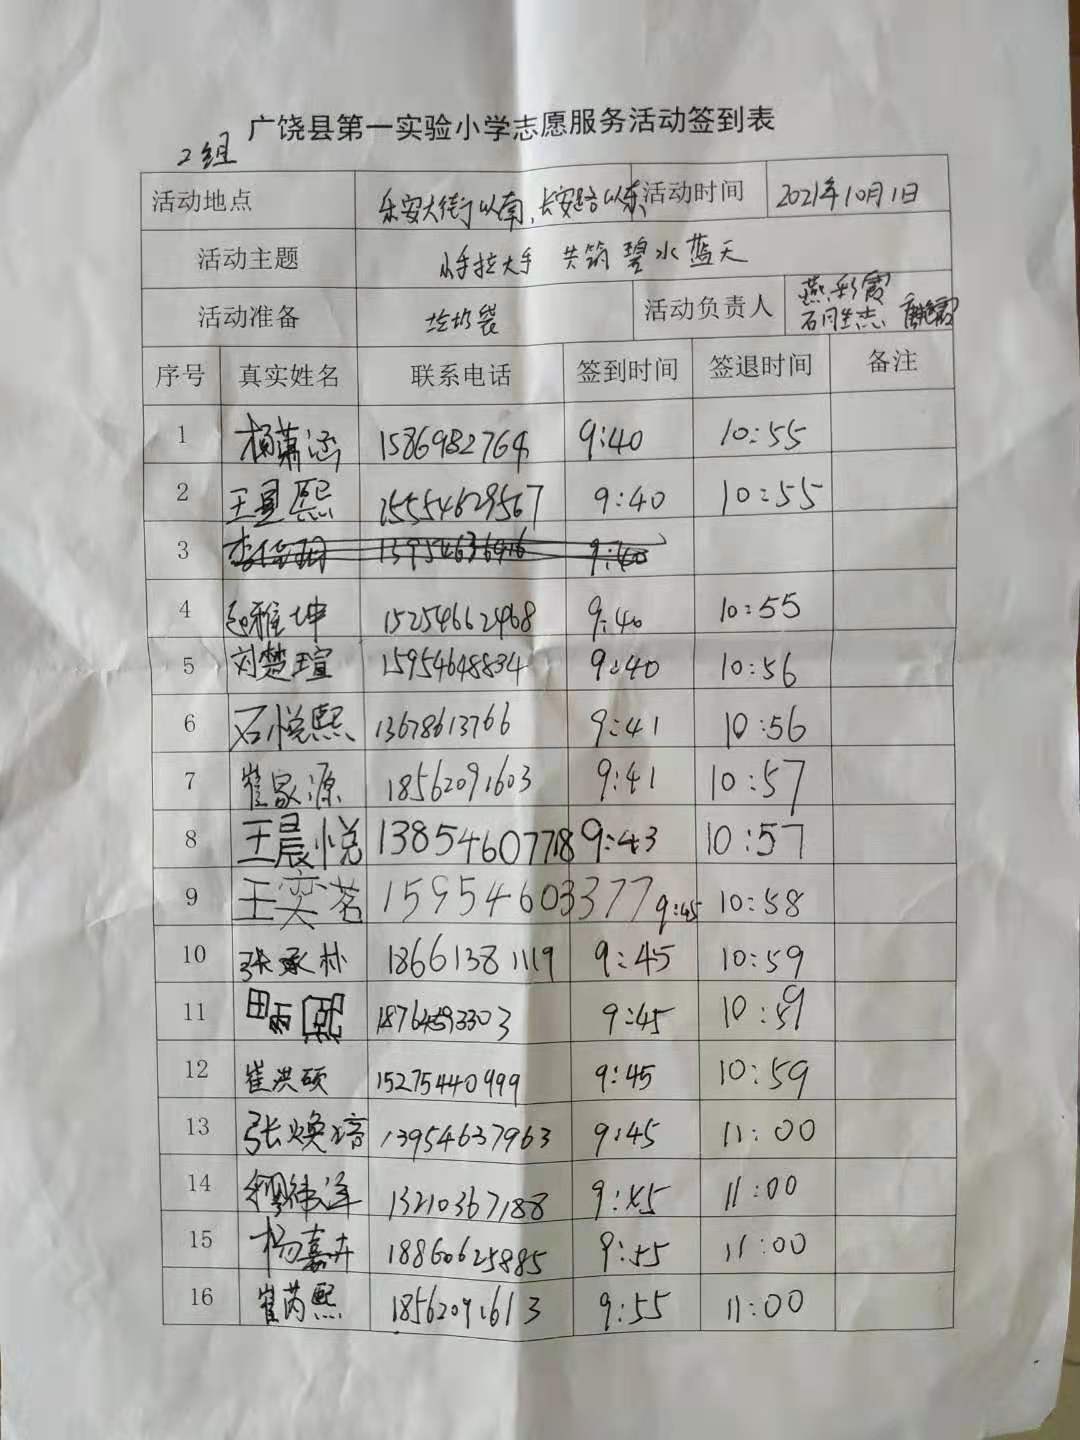 广饶县第一实验小学志愿服务活动签到表
2组
活动地点 乐安大街以南、长安路以东 活动时间 2021年10月1日
活动主题 小手拉大手 共筑碧水蓝天
活动准备 垃圾袋 活动负责人 燕彩霞
序号 真实姓名 联系电话 签到时间 签退时间 备注
1 杨萧涵 1586982764 9:40 10:55
2 王星熙 15554629567 9:40 10:55
3 13954636416 9:40
4 赵雅坤 15254662468 9:40 10:55
5 刘楚瑄 15954648834 9:40 10:56
6 石悦熙 13678613766 9:41 10:56
7 崔家源 18562091603 9:41 10:57
8 王晨悦 13854607718 9:43 10:57
9 王奕茗 15954603377 9:45 10:58
10 张承朴 18661381119 9:45 10:59
11 田雨熙 9:45 10:59
12 崔洪硕 15275440999 9:45 10:59
13 张焕培 13954637963 9:45 11:00
14 13210367188 9:45 11:00
15 杨嘉卉 18860625885 9:55 11:00
16 崔芮熙 18562091613 9:55 11:00